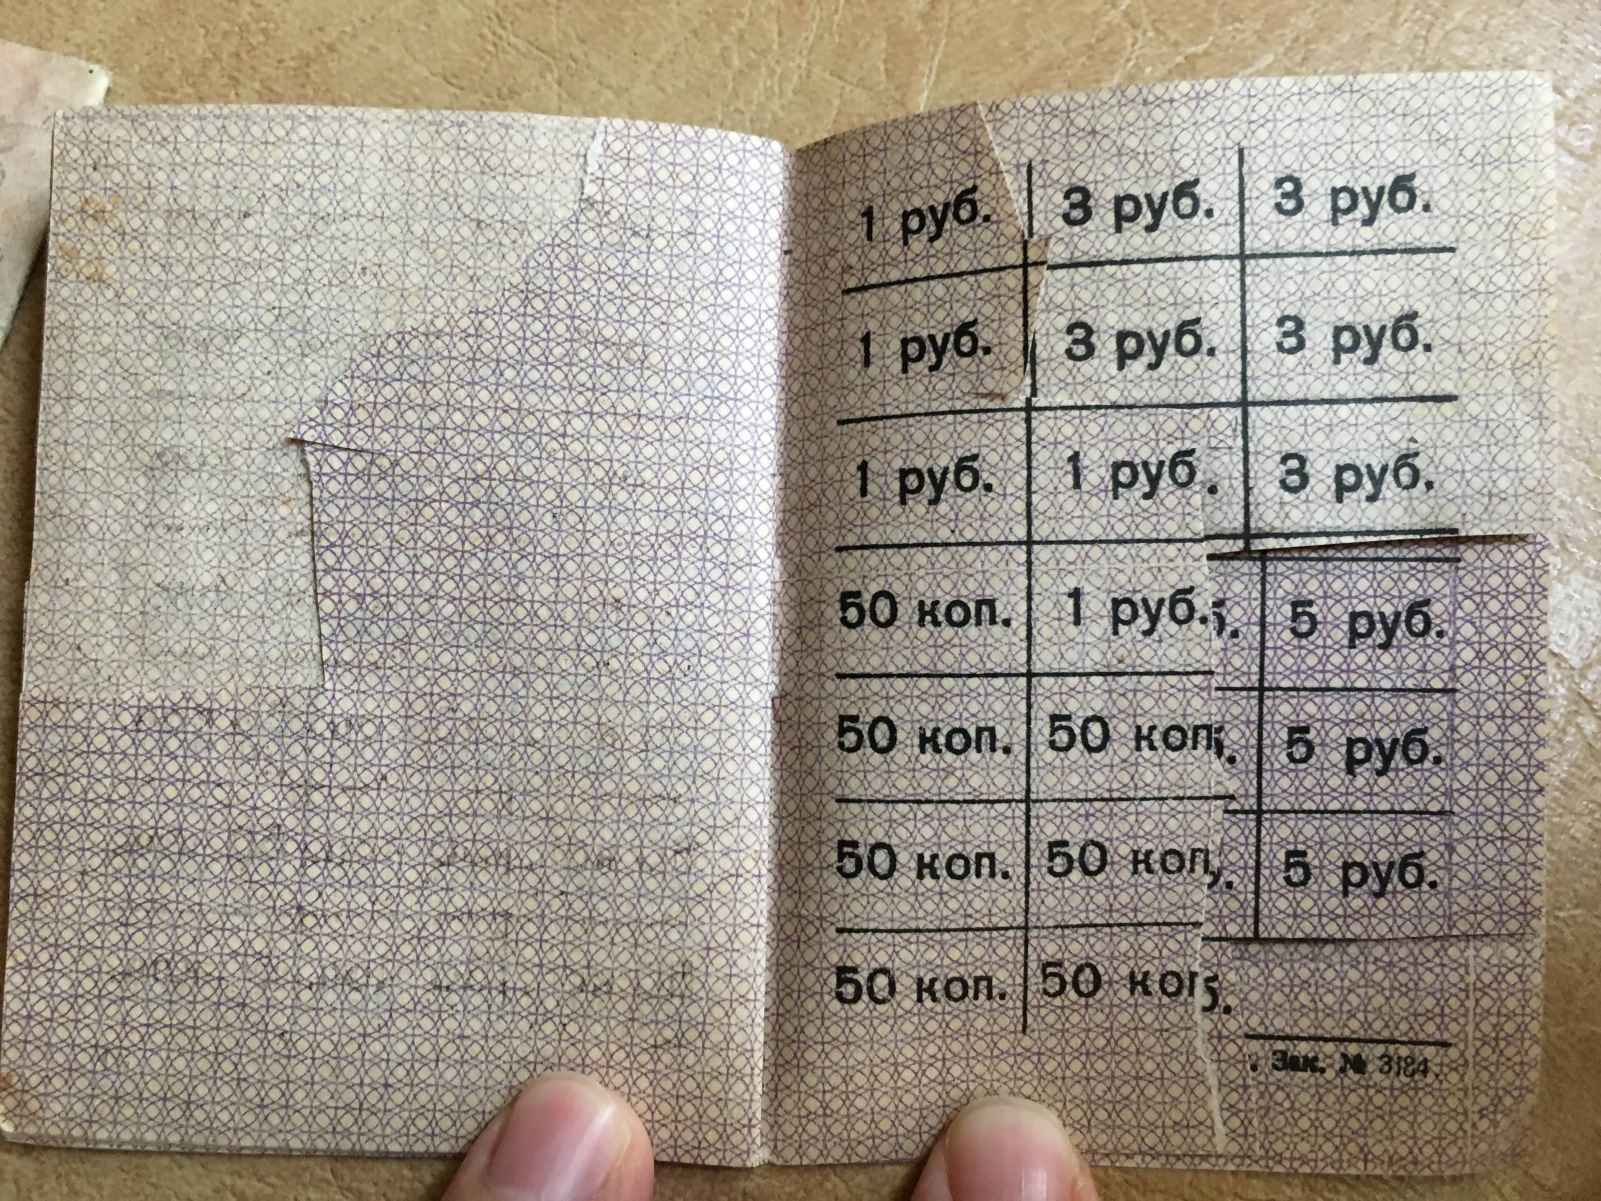 1 руб. 3 руб. 3 руб.
1 руб. 3 руб. 3 руб.
1 руб. 1 руб. 3 руб.
50 коп. 1 руб. 5 руб.
50 коп. 50 коп 5 руб.
50 коп. 50 коп 5 руб.
50 коп. 50 коп
Зак. № 3184.